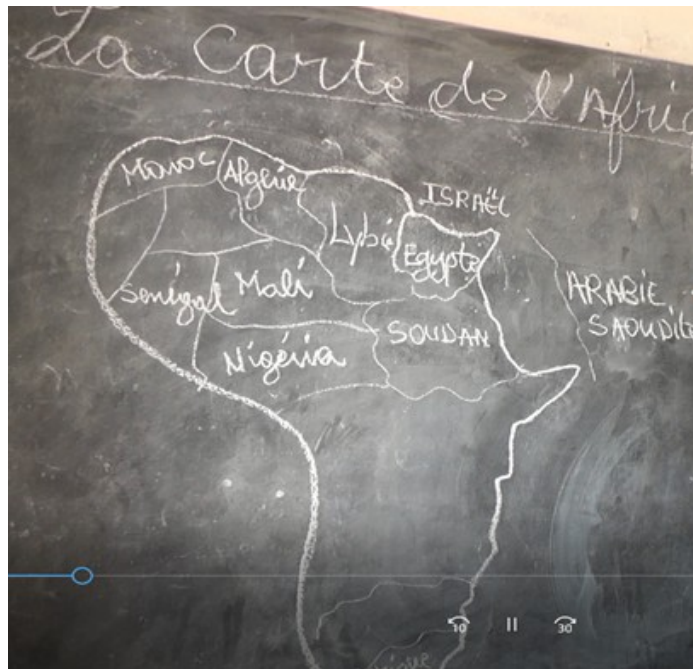 La Carte de l'Afriq
Maroc
Algérie
ISRAËL
Lybie
Egypte
ARABIE
SAOUDITE
Senégal
Mali
SOUDAN
Nigéria
10
30